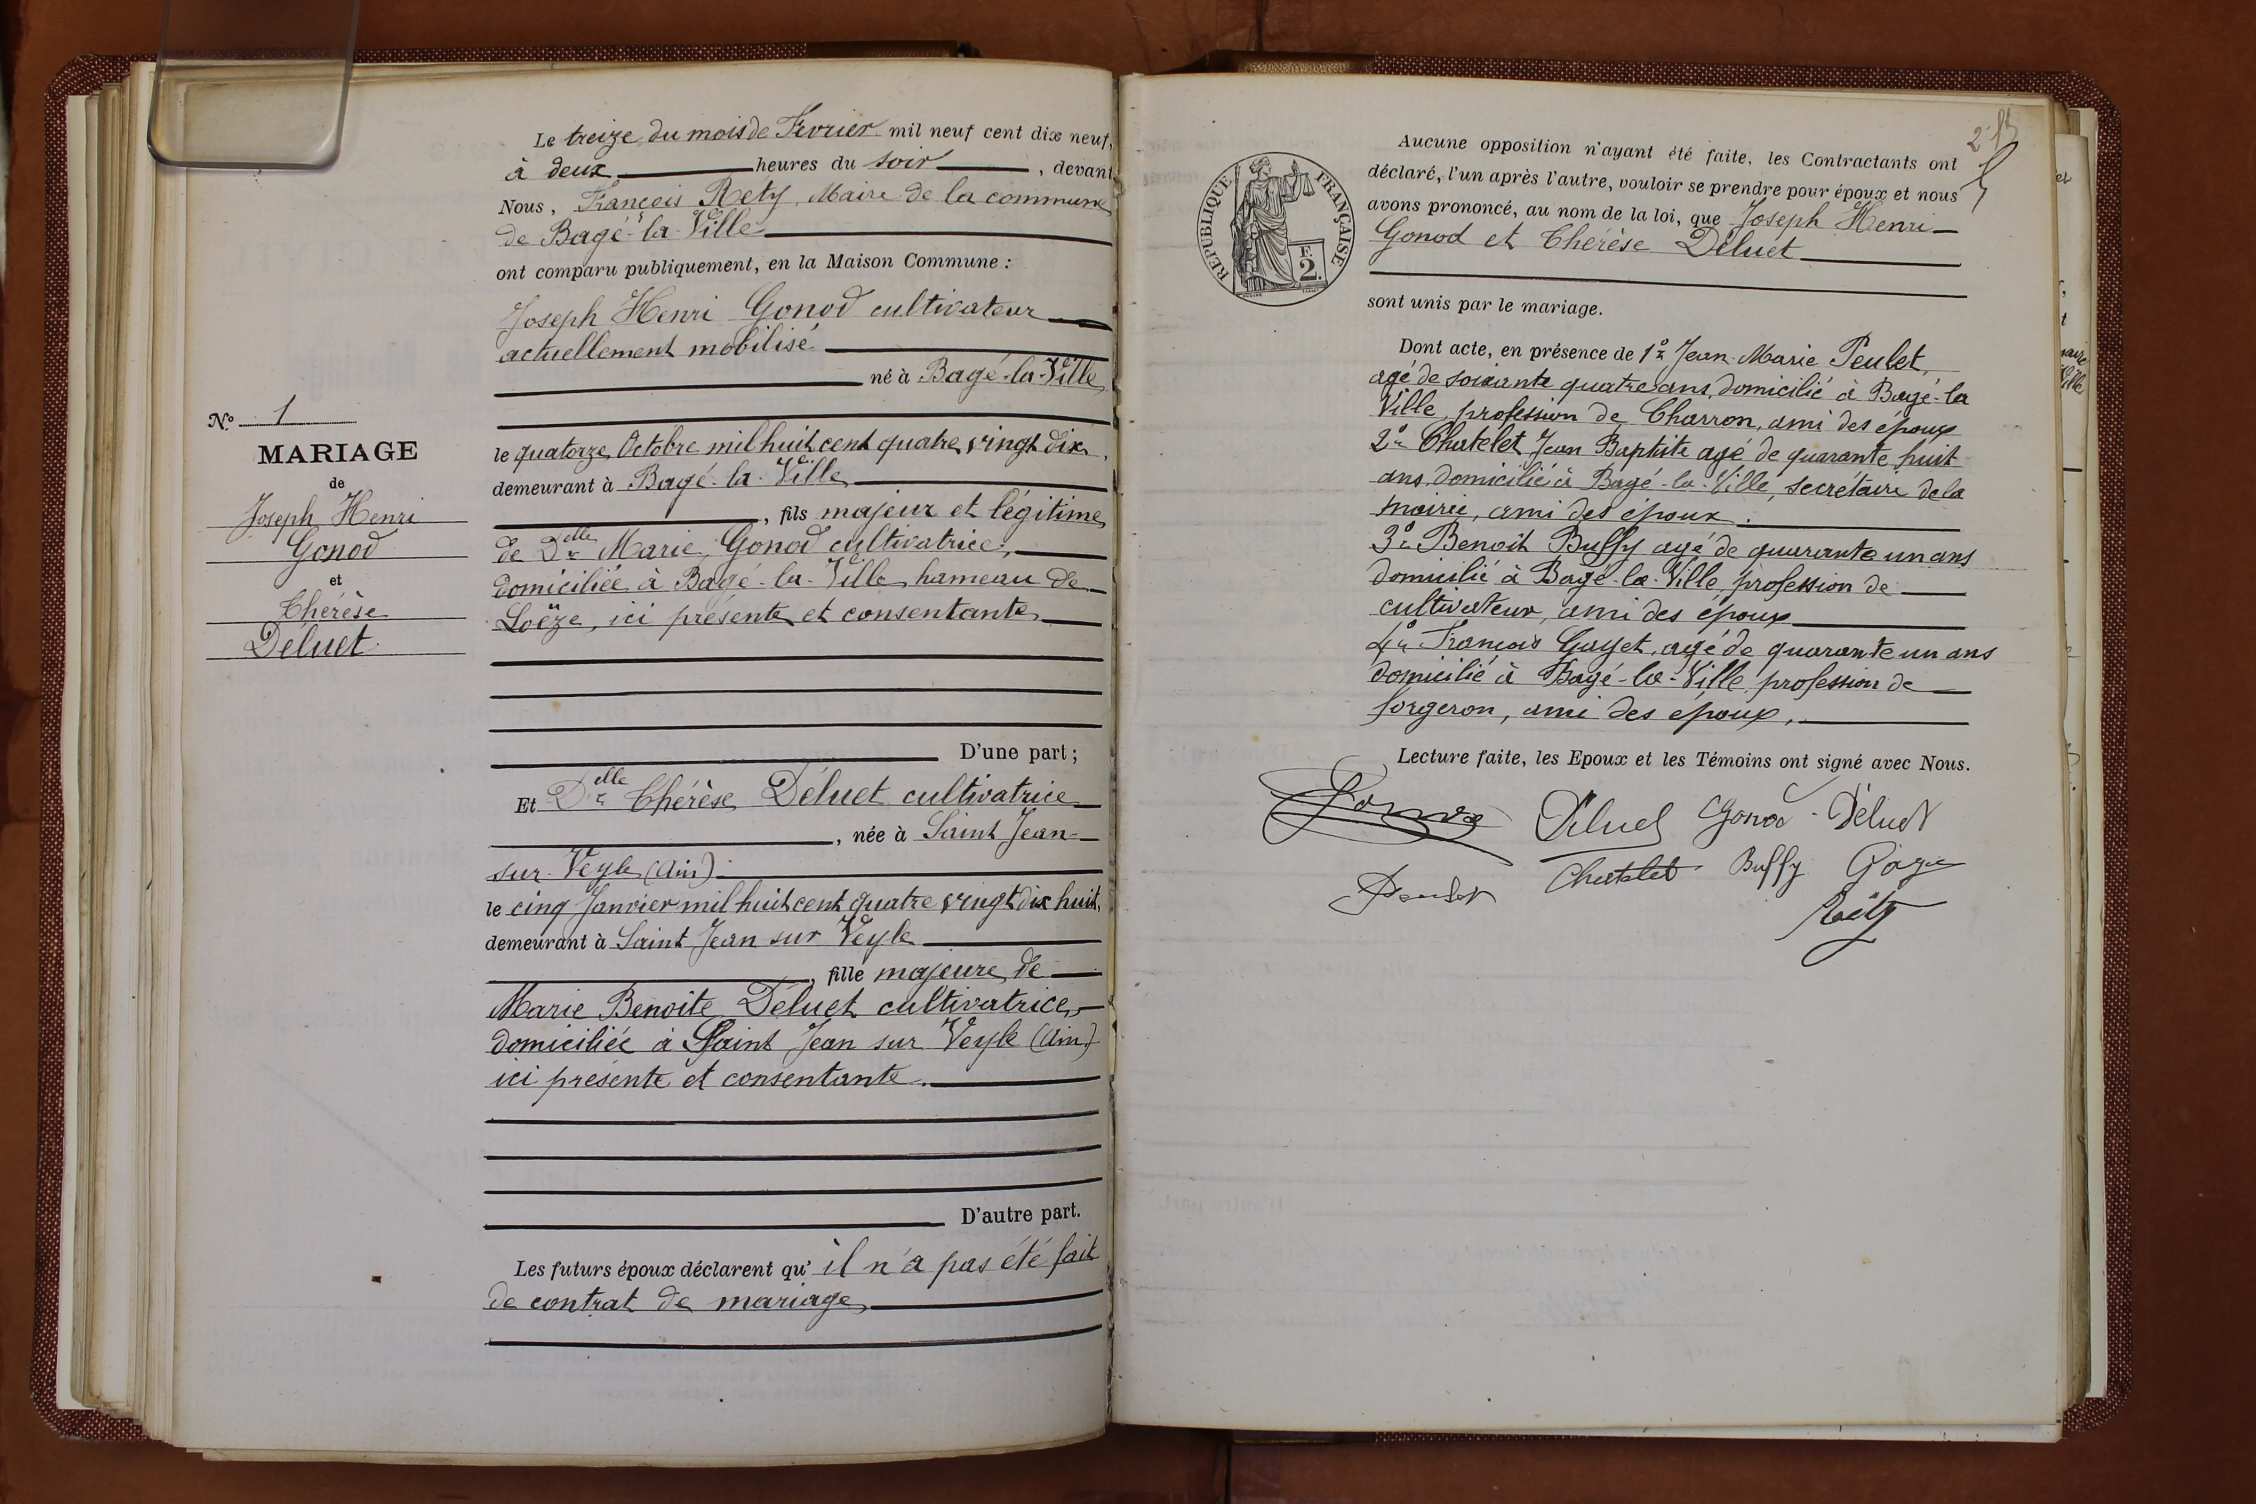 Le treize du mois de Février mil neuf cent dix neuf,
à deux heures du soir, devant
Nous, François Réty, Maire de la commune
de Bagé-la-Ville
ont comparu publiquement, en la Maison Commune :
Joseph Henri Gonod cultivateur
actuellement mobilisé
né à Bagé-la-Ville
le quatorze Octobre mil huit cent quatre vingt dix,
demeurant à Bagé-la-Ville
, fils majeur et légitime
de Delle Marie Gonod cultivatrice,
domiciliée à Bagé-la-Ville hameau de
Loëze, ici présente et consentante
D'une part ;
Et Delle Thérèse Déluet cultivatrice
, née à Saint Jean-
sur-Veyle (Ain)
le cinq Janvier mil huit cent quatre vingt dix huit,
demeurant à Saint Jean sur Veyle
, fille majeure de
Marie Benoite Déluet cultivatrice,
domiciliée à Saint Jean sur Veyle (Ain)
ici présente et consentante.
D'autre part.
Les futurs époux déclarent qu'il n'a pas été fait
de contrat de mariage
No 1
MARIAGE
de
Joseph Henri
Gonod
et
Thérèse
Déluet
Aucune opposition n'ayant été faite, les Contractants ont
déclaré, l'un après l'autre, vouloir se prendre pour époux et nous
avons prononcé, au nom de la loi, que Joseph Henri
Gonod et Thérèse Déluet
sont unis par le mariage.
Dont acte, en présence de 1o Jean-Marie Peulet,
agé de soixante quatre ans, domicilié à Bagé-la
Ville, profession de Charron, ami des époux
2o Chatelet Jean Baptiste agé de quarante huit
ans domicilié à Bagé-la-Ville, secrétaire de la
mairie, ami des époux.
3o Benoit Buffy agé de quarante un ans
domicilié à Bagé-la-Ville, profession de
cultivateur, ami des époux
4o François Gayet, agé de quarante un ans
domicilié à Bagé-la-Ville profession de
forgeron, ami des époux,
Lecture faite, les Epoux et les Témoins ont signé avec Nous.
Gonod Déluet Gonod Déluet
Peulet Chatelet Buffy Gayet
Réty
RÉPUBLIQUE FRANÇAISE
F.
2.